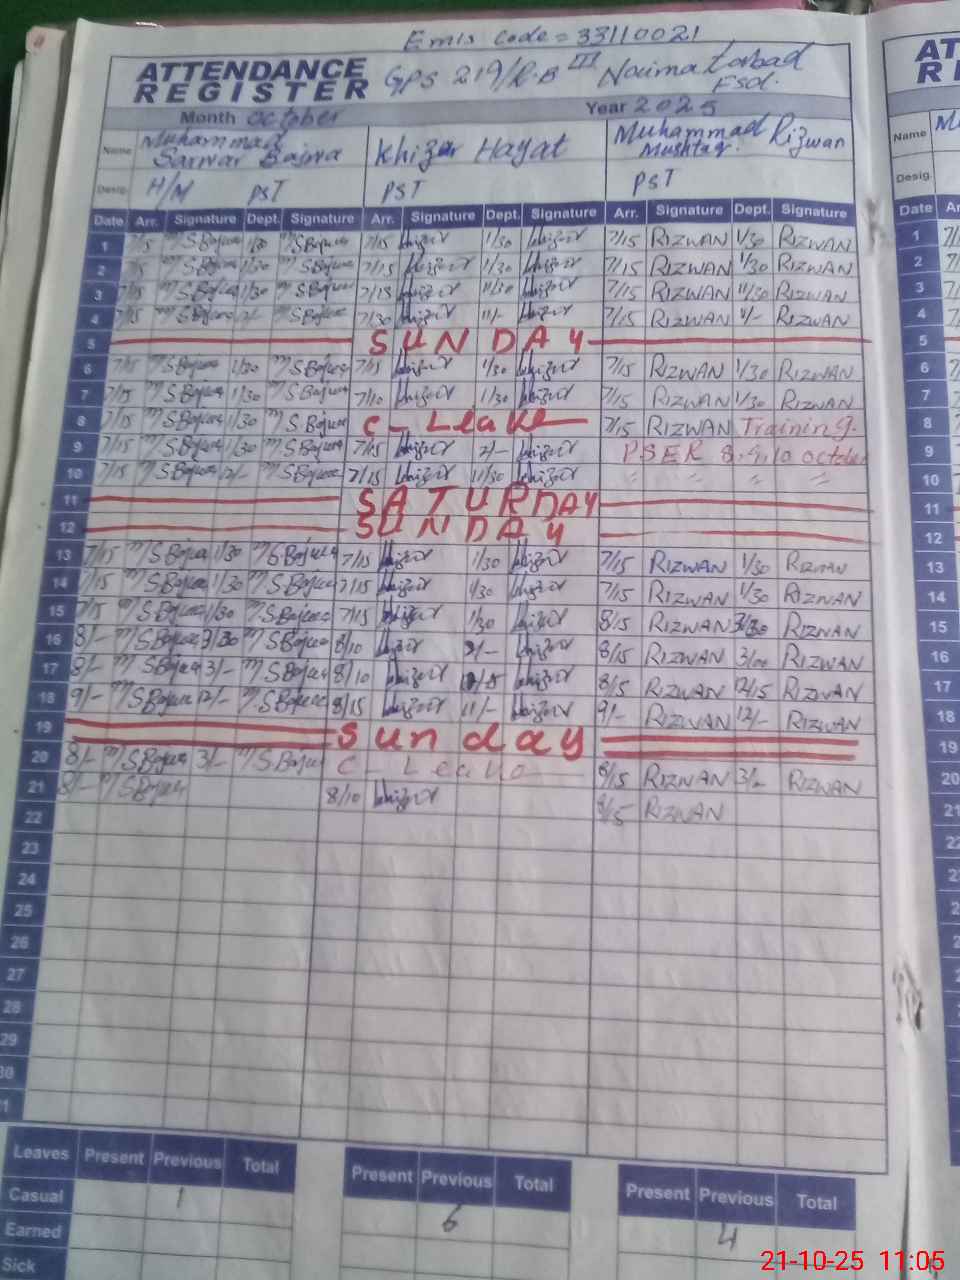 Emis Code = 33110021
ATTENDANCE REGISTER GPS 219/R.B III Naima
Month October Year 2025
Name Muhammad Sarwar Bajwa Khizar Hayat Muhammad Rizwan Mushtaq.
Desig. H/M PST PST PST
Date Arr. Signature Dept. Signature Arr. Signature Dept. Signature Arr. Signature Dept. Signature
1 7/15 M S Bajwa 1/30 M S Bajwa 7/15 khizar 1/30 khizar 7/15 RIZWAN 1/30 RIZWAN
2 7/15 M S Bajwa 1/30 M S Bajwa 7/15 khizar 1/30 khizar 7/15 RIZWAN 1/30 RIZWAN
3 7/15 M S Bajwa 11/30 M S Bajwa 7/15 khizar 11/30 khizar 7/15 RIZWAN 11/30 RIZWAN
4 7/15 M S Bajwa M S Bajwa 7/30 khizar 11/- khizar 7/15 RIZWAN 11/- RIZWAN
5 SUNDAY
6 7/15 M S Bajwa 1/30 M S Bajwa 7/15 khizar 1/30 khizar 7/15 RIZWAN 1/30 RIZWAN
7 7/15 M S Bajwa 1/30 M S Bajwa 7/10 khizar 1/30 khizar 7/15 RIZWAN 1/30 RIZWAN
8 7/15 M S Bajwa 1/30 M S Bajwa C- Leave 7/15 RIZWAN Training.
9 7/15 M S Bajwa 1/30 M S Bajwa 7/15 khizar 2/- khizar PSER 8,9,10 October
10 7/15 M S Bajwa M S Bajwa 7/15 khizar 11/30 khizar " " " "
11 SATURDAY
12 SUNDAY
13 7/15 M S Bajwa 1/30 M S Bajwa 7/15 khizar 1/30 khizar 7/15 RIZWAN 1/30 RIZWAN
14 7/15 M S Bajwa 1/30 M S Bajwa 7/15 khizar 1/30 khizar 7/15 RIZWAN 1/30 RIZWAN
15 7/15 M S Bajwa 1/30 M S Bajwa 7/15 khizar 1/30 khizar 8/15 RIZWAN RIZWAN
16 8/- M S Bajwa M S Bajwa 8/10 khizar khizar 8/15 RIZWAN 3/00 RIZWAN
17 8/- M S Bajwa 3/- M S Bajwa 8/10 khizar khizar 8/15 RIZWAN 12/15 RIZWAN
18 9/- M S Bajwa 12/- M S Bajwa 8/15 khizar 11/- khizar 9/- RIZWAN 12/- RIZWAN
19 Sunday
20 8/- M S Bajwa 3/- M S Bajwa C- Leave 8/15 RIZWAN 3/- RIZWAN
21 8/- M S Bajwa 8/10 khizar 8/15 RIZWAN
22
23
24
25
26
27
28
29
30
31
Leaves Present Previous Total Present Previous Total Present Previous Total
Casual 1 6 4
Earned
Sick
21-10-25 11:05